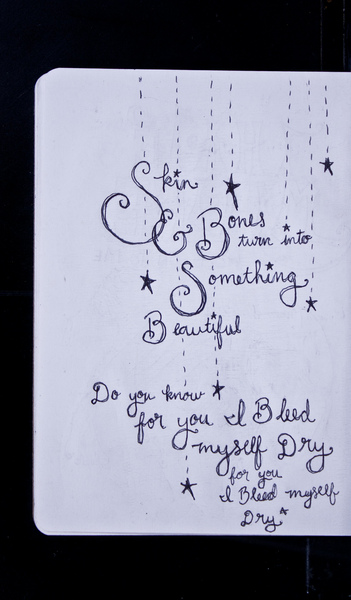 Skin
& Bones
turn into
Something
Beautiful
Do you know
for you I Bleed
myself Dry
for you
I Bleed myself
Dry